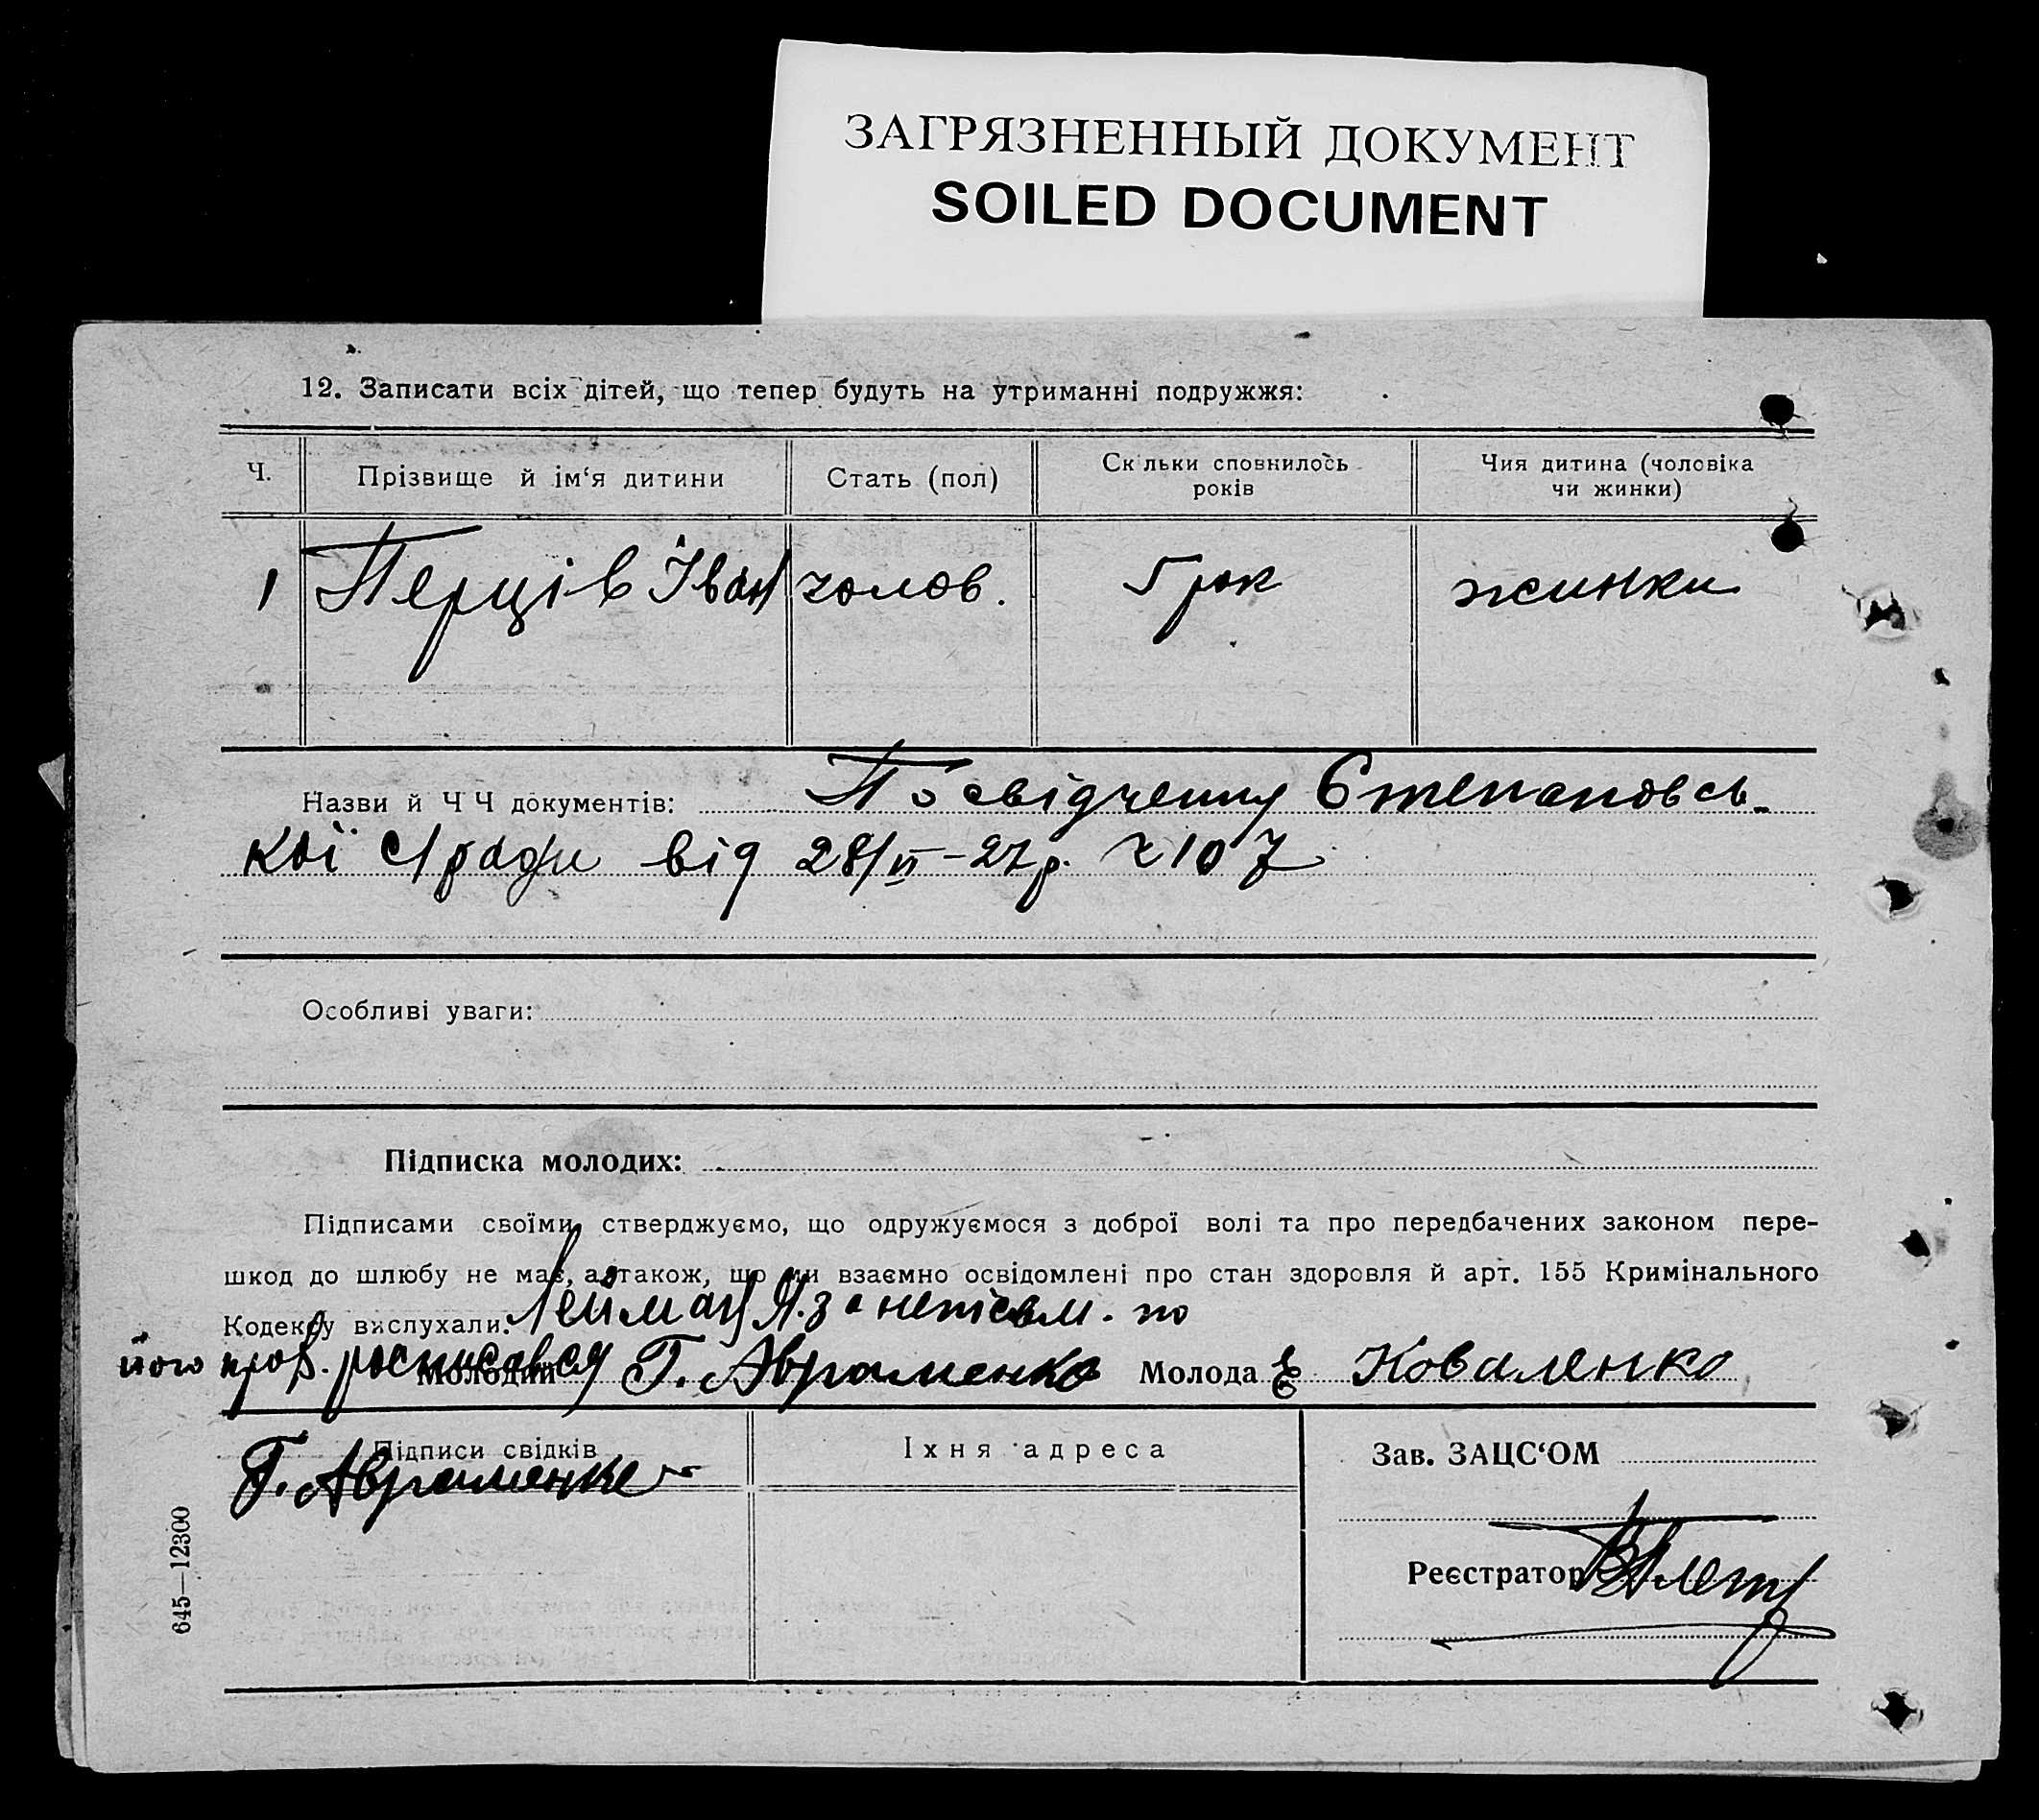 ЗАГРЯЗНЕННЫЙ ДОКУМЕНТ
SOILED DOCUMENT
12. Записати всіх дітей, що тепер будуть на утриманні подружжя:
Ч. Прізвище й ім‘я дитини Стать (пол) Скільки сповнилось років Чия дитина (чоловіка чи жинки)
1 Перців Іван чолов. 5 рок жинки
Назви й ЧЧ документів: Посвідченну Степановсь-
кої с/ради від 28/VI-27р. ч 107
Особливі уваги:
Підписка молодих:
Підписами своїми стверджуємо, що одружуємося з доброї волі та про передбачених законом пере-
шкод до шлюбу не має, а також, що ми взаємно освідомлені про стан здоровля й арт. 155 Кримінального
Кодексу вислухали. Нейман Я. за неписьм. по
його проз. росписався Г. Авраменко Молодий Молода Є Коваленко
Підписи свідків Їхня адреса Зав. ЗАЦС‘ОМ
Г. Авраменко
Реєстратор
645—12300